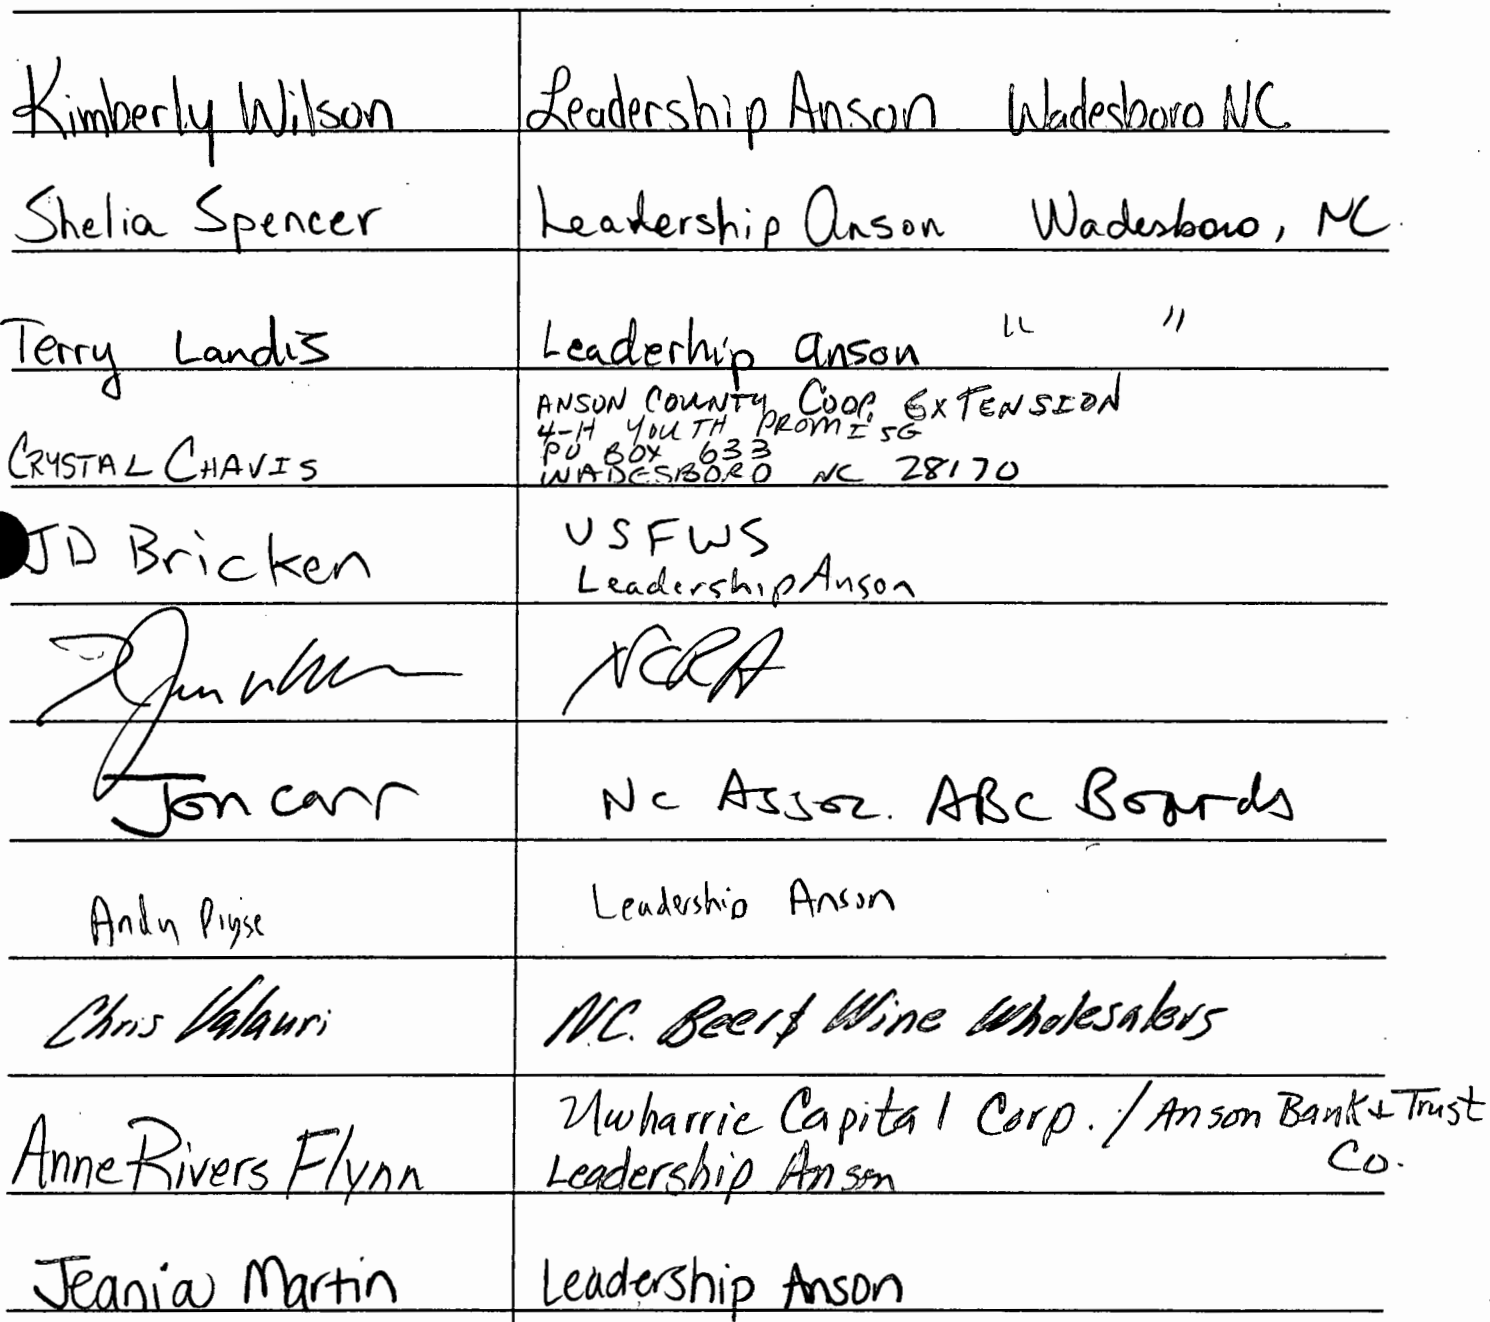 Kimberly Wilson Leadership Anson Wadesboro NC
Shelia Spencer Leadership Anson Wadesboro, NC.
Terry Landis Leaderhip anson " "
ANSON COUNTY COOP. EXTENSION
4-H YOUTH PROMISE
PO BOX 633
CRYSTAL CHAVIS WADESBORO NC 28170
JD Bricken USFWS
Leadership Anson
NCRA
Jon Carr NC Assoc. ABC Boards
Andy Leadership Anson
Chris Valauri N.C. Beer & Wine Wholesalers
Uwharrie Capital Corp. / Anson Bank & Trust
Co.
Anne Rivers Flynn Leadership Anson
Jeania Martin Leadership Anson